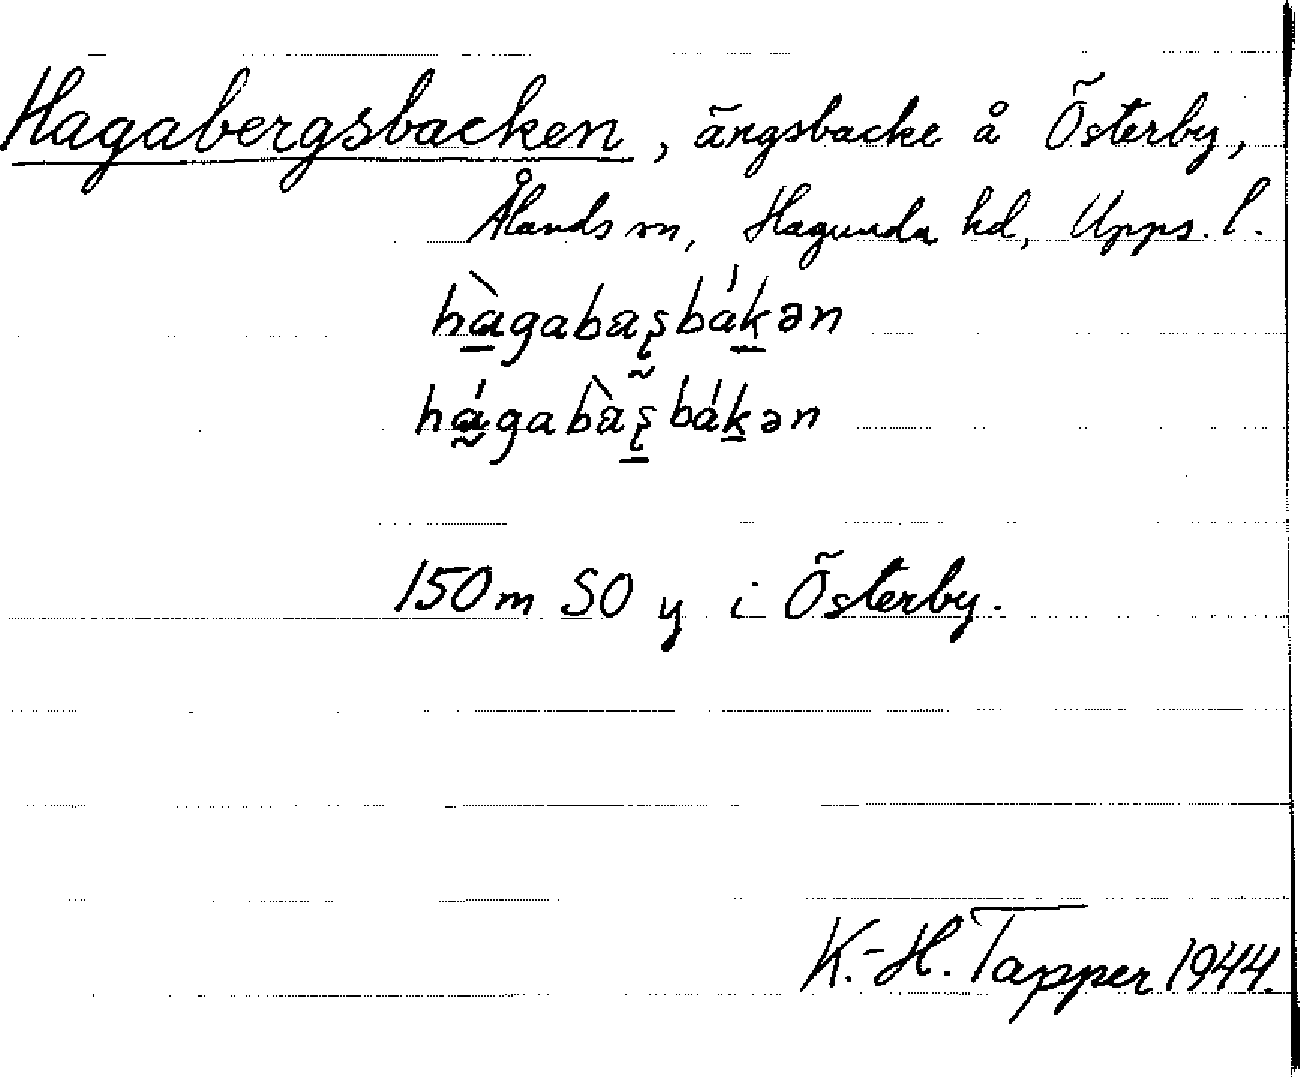 Hagabergsbacken, ängsbacke å Österby,
Ålands sn, Hagunda hd, Upps. l.
hà̱gabaʂbáḵən
há̰gabàʂ̱báḵən
150 m SO y i Österby.
K.-H. Tapper 1944.